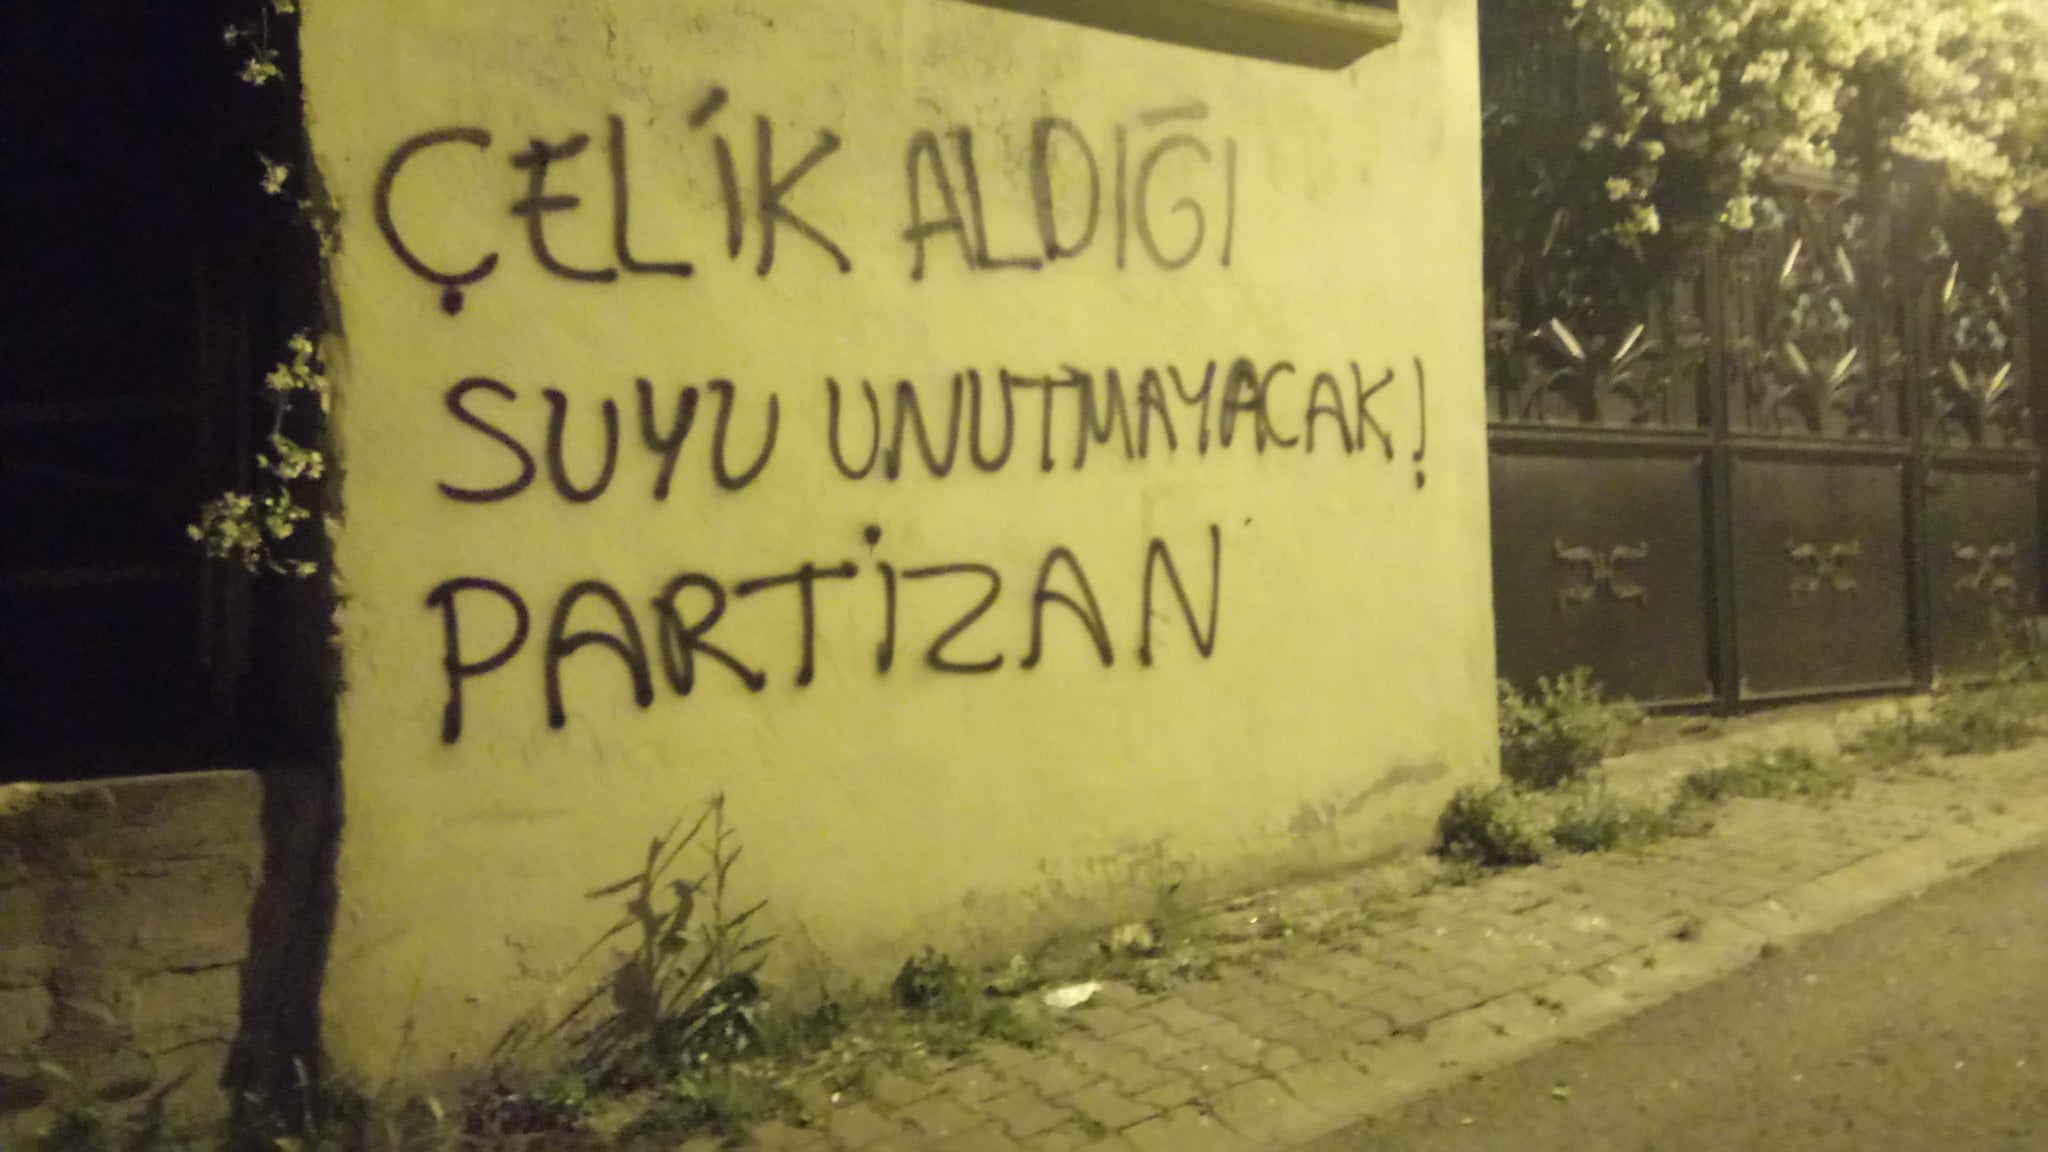 ÇELİK ALDIĞI
SUYU UNUTMAYACAK!
PARTİZAN